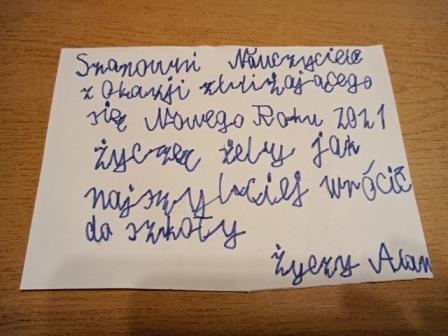 Szanowni Nauczyciele
z okazji zbliżającego
się Nowego Roku 2021
życzę żeby jak
najszybciej wrócić
do szkoły
życzy Alan